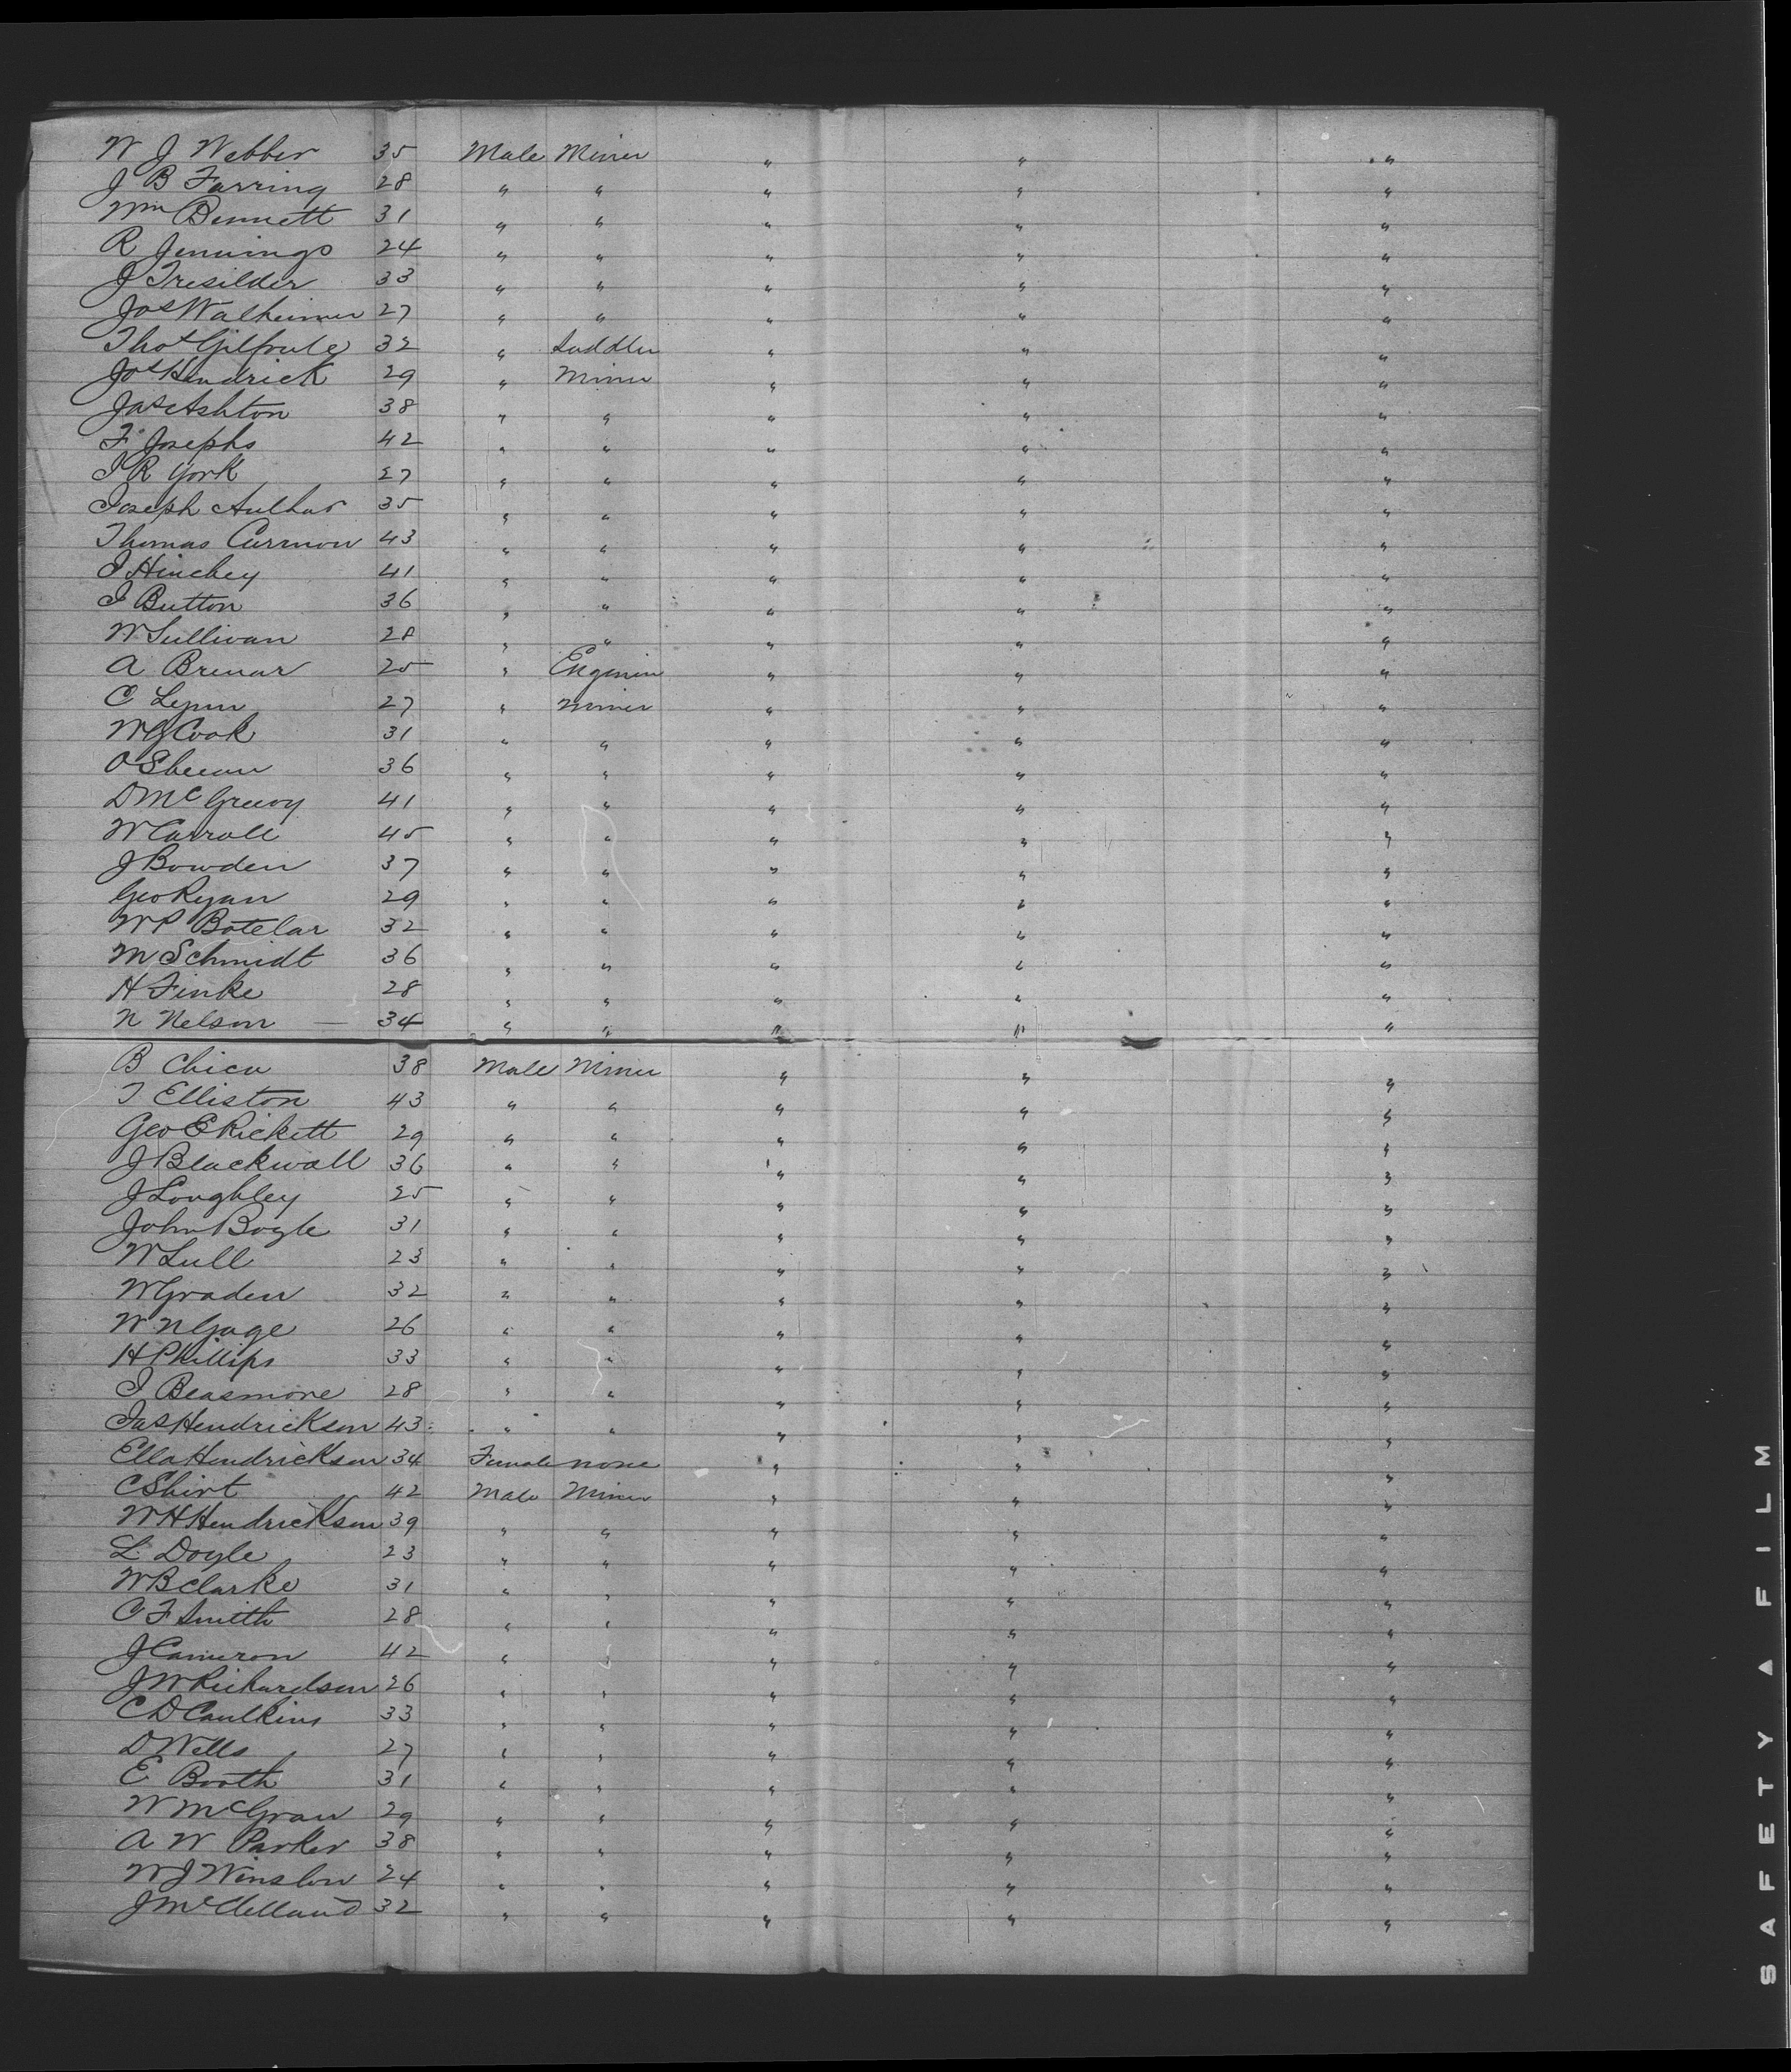 W J Webber 35 Male Miner " " "
J B Farring 28 " " " " "
Wm Bennett 31 " " " " "
R Jennings 24 " " " " "
J Tresilder 33 " " " " "
Jos Walheimer 27 " " " " "
Thos 32 " Saddler " " "
Jos Hendrick 29 " Miner " " "
Jas Ashton 38 " " " " "
F Josephs 42 " " " " "
I R York 27 " " " " "
Joseph 35 " " " " "
Thomas Curnow 43 " " " " "
J Hinchey 41 " " " " "
J Button 36 " " " " "
W Sullivan 28 " " " " "
A Brenar 25 " Enginer " " "
C Lynn 27 " Miner " " "
W J Cook 31 " " " " "
O Sheean 36 " " " " "
D McGreevy 41 " " " " "
W Carroll 45 " " " " "
J Bowden 37 " " " " "
Geo Ryan 29 " " " " "
W P Botelar 32 " " " " "
M Schmidt 36 " " " " "
H Finke 28 " " " " "
N Nelson — 34 " " " " "
B Chica 38 Male Miner " " "
T Elliston 43 " " " " "
Geo E Rickett 29 " " " " "
J Blackwall 36 " " " " "
J Loughley 25 " " " " "
John Boyle 31 " " " " "
W Lull 23 " " " " "
W Graden 32 " " " " "
W N Gage 26 " " " " "
H Phillips 33 " " " " "
J Beasmore 28 " " " " "
Jas Hendrickson 43 " " " " "
Ella Hendrickson 34 Female none " " "
C Shirt 42 Male Miner " " "
W H Hendrickson 39 " " " " "
L Doyle 23 " " " " "
W B Clarke 31 " " " " "
C F Smith 28 " " " " "
J Cameron 42 " " " " "
J W Richardson 26 " " " " "
C D Caulkins 33 " " " " "
D Wells 27 " " " " "
E Booth 31 " " " " "
W McGraw 29 " " " " "
A W Parker 38 " " " " "
W J Winslow 24 " " " " "
J McClelland 32 " " " " "
SAFETY ▲ FILM